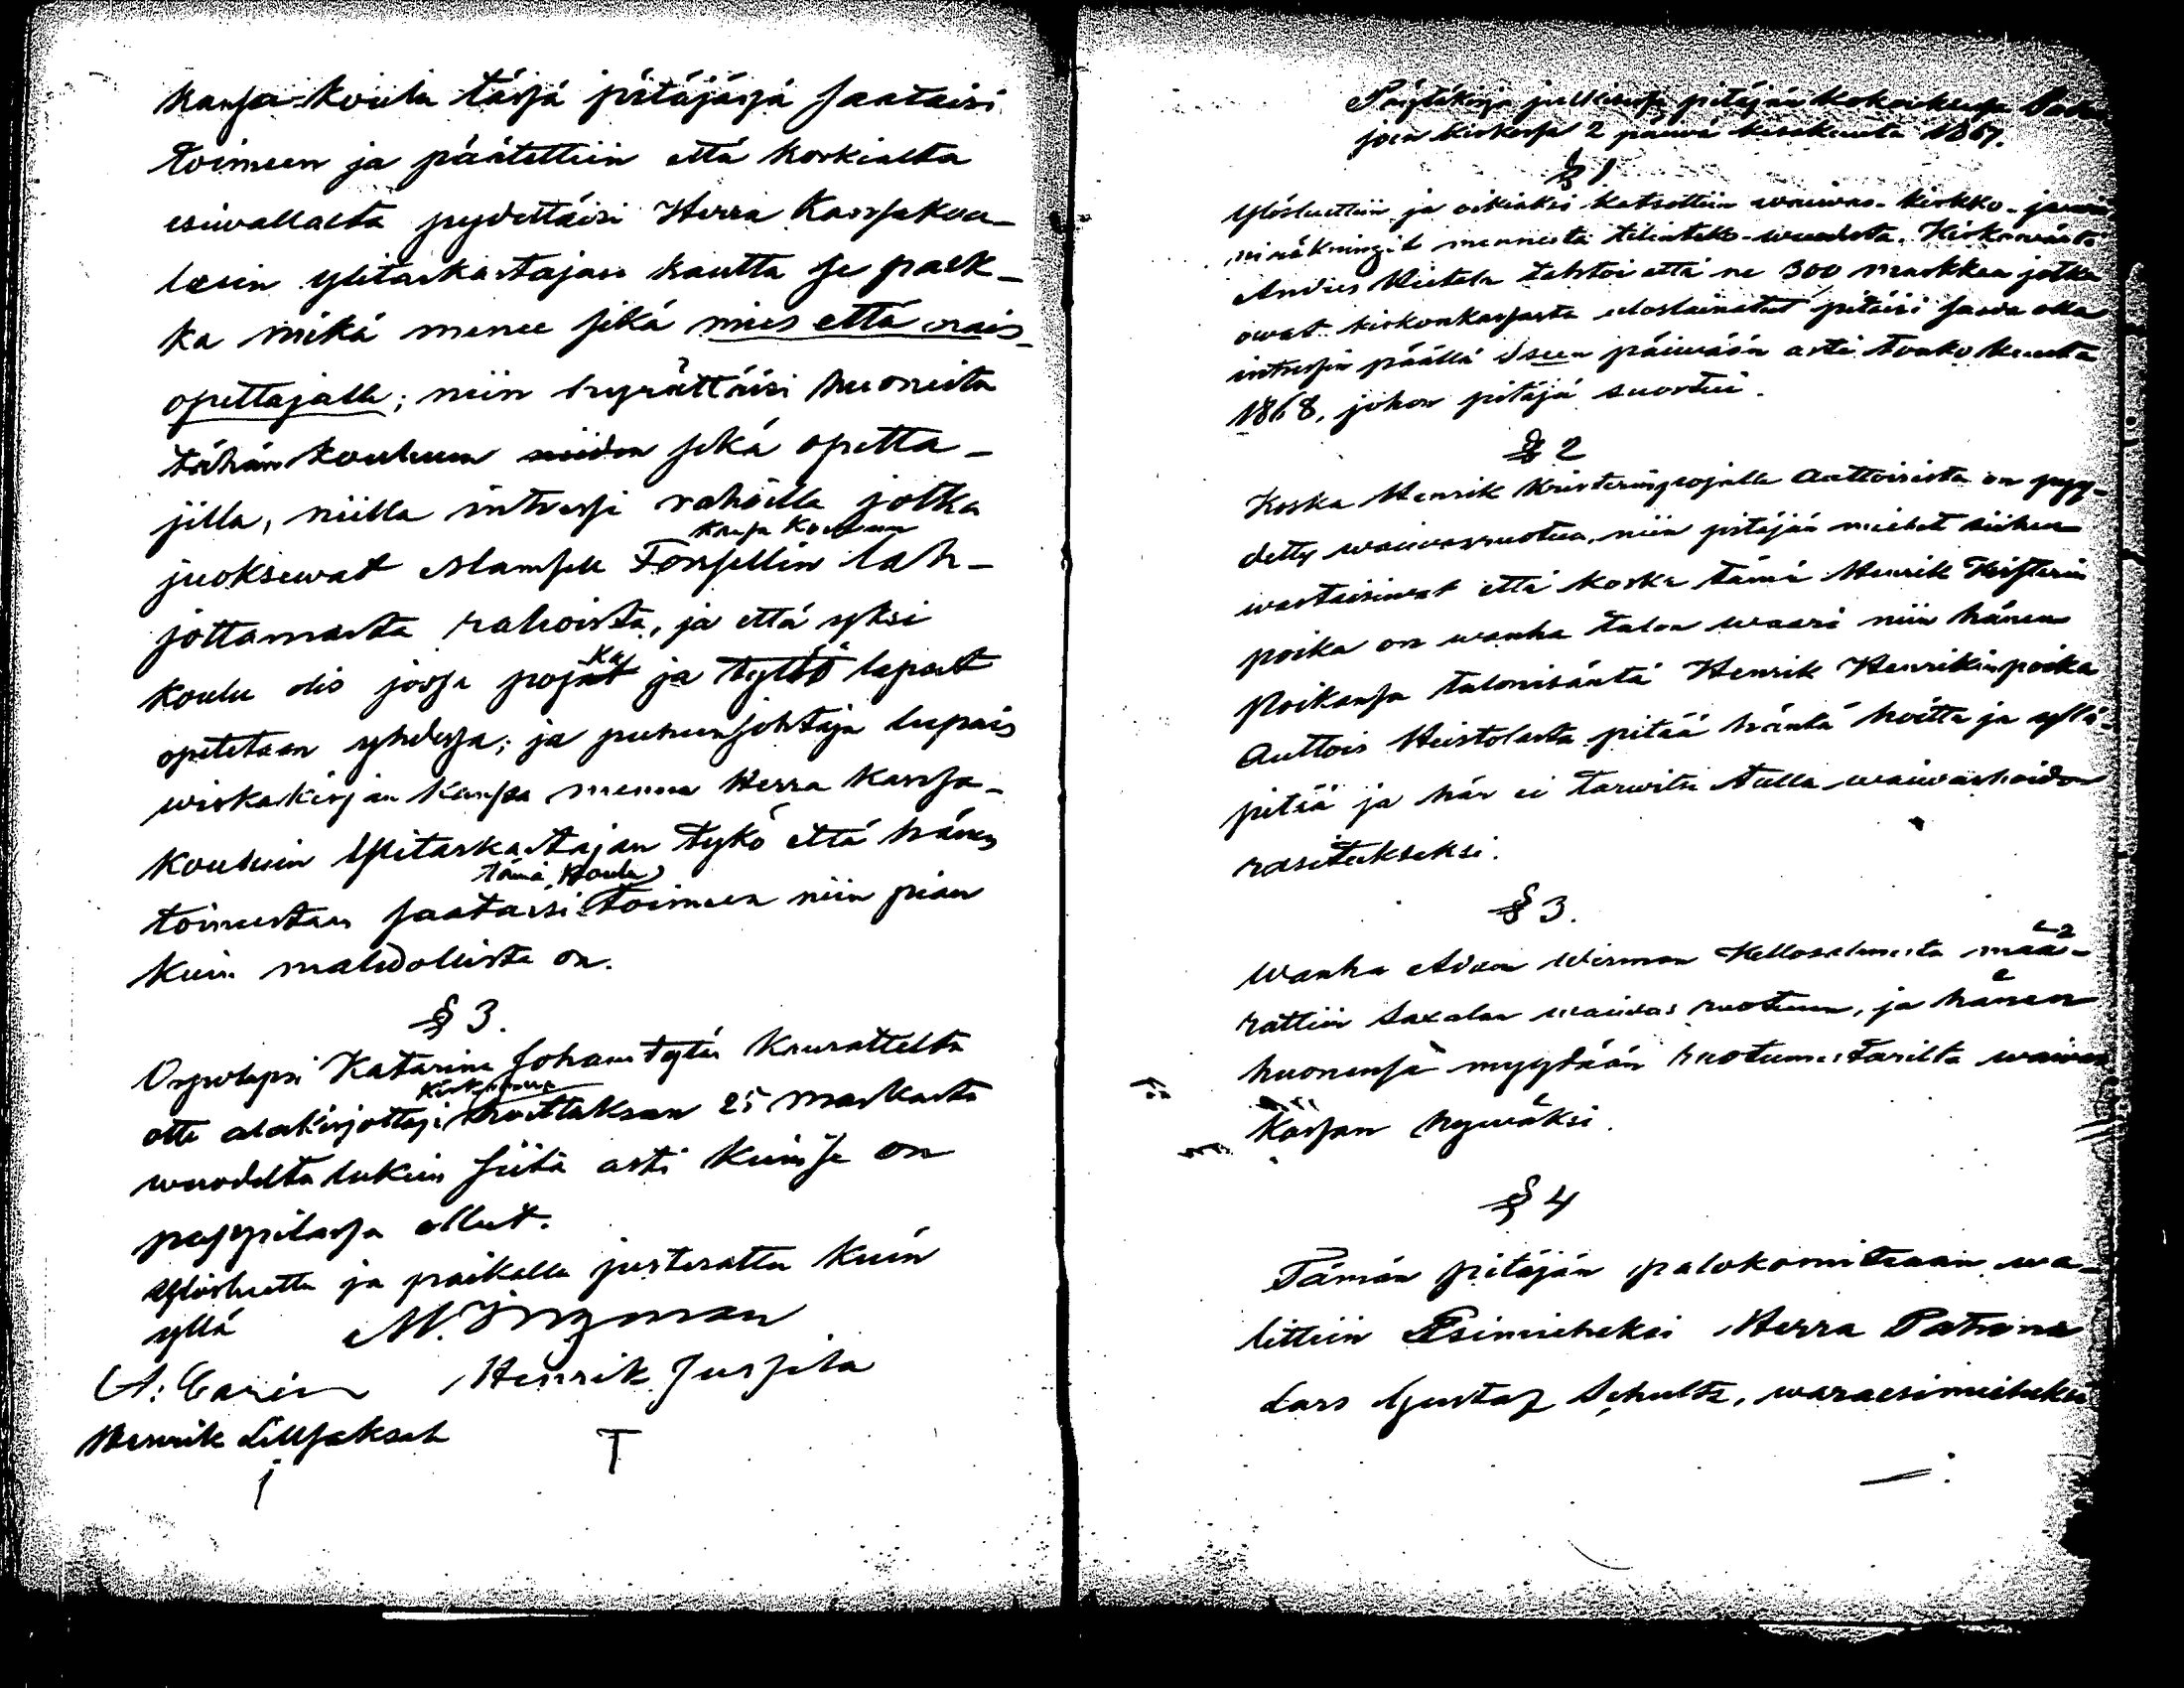 kansa-koulu tässä pitäjässä saataisi
toimeen ja päätettiin että korkialta
esiwallalta pydettäisi Herra Kansakou-
luin ylitarkastajan kautta se palk-
ka mikä menee sekä mies että nais-
opettajalle; niin hyrättäisi huoneita
tähän kouluun niiden sekä opetta-
jilla, niillä intressi rahoilla jotka
kansa kouluun
juoksewat Mamselli Forsellin lah-
jottamasta rahoista, ja että yksi
koulu olis jossa pojat ja tyttö lapset
opetetaan yhdessä; ja puheenjohtaja lupais
wirkakirjan kanssa mennä Herra Kansa-
kouluin Ylitarkastajan tykö että hänen
tämä koulu
toimestaan saataisi toimeen niin pian
kuin mahdollista on.
§ 3.
Orpolapsi Katarina Johanstytär
otti alakirjottaja hoittaksan 25 markasta
wuodelta lukein siitä asti kuin se on
pappilassa ollut.
Ylösluettu ja paikalla justerattu kuin
yllä M. Ingman
A: Henrik Jussila
Henrik
Pöytäkirja pitäjän kokouksessa Pada-
joen kirkossa 2 päiwä kesäkuuta 1867.
§ 1
Ylösluettiin ja oikiaksi katsottiin waiwas- kirkko-
räkningit mennestä tilinteko-wuodesta. Kirkonwärti
Andres Hietala tahtoi että ne 300 markkaa jotka
owat kirkonkassasta uloslainatut pitäisi saada olla
intressin päällä päiwään asti Touko kuuta
1868, johon pitäjä suostui.
§ 2
Koska Henrik Kristerinpojalle Auttoisista on pyy-
detty waiwasruotua, niin pitäjän miehet siihen
wastaisiwat että koska tämä Henrik Kristerin
poika on wanha talon waari niin hänen
Poikansa talonisäntä Henrik Henrikinpoika
Auttois Heistolasta pitää häntä hoitta ja yllä-
pitää ja hän ei tarwitse tulla waiwashoidon
rasitukseksi.
§ 3.
Wanha Adam Wirman Kellosalmesta mää-
rättiin Saxalan waiwas ruotuun, ja hänen
huonensa myydään waiwas
Kassan hywäksi.
§ 4
Tämän pitäjän palokomiteaan wa-
littiin Esimieheksi Herra Patruna
Lars Gustaf Schultz, waraesimieheksi